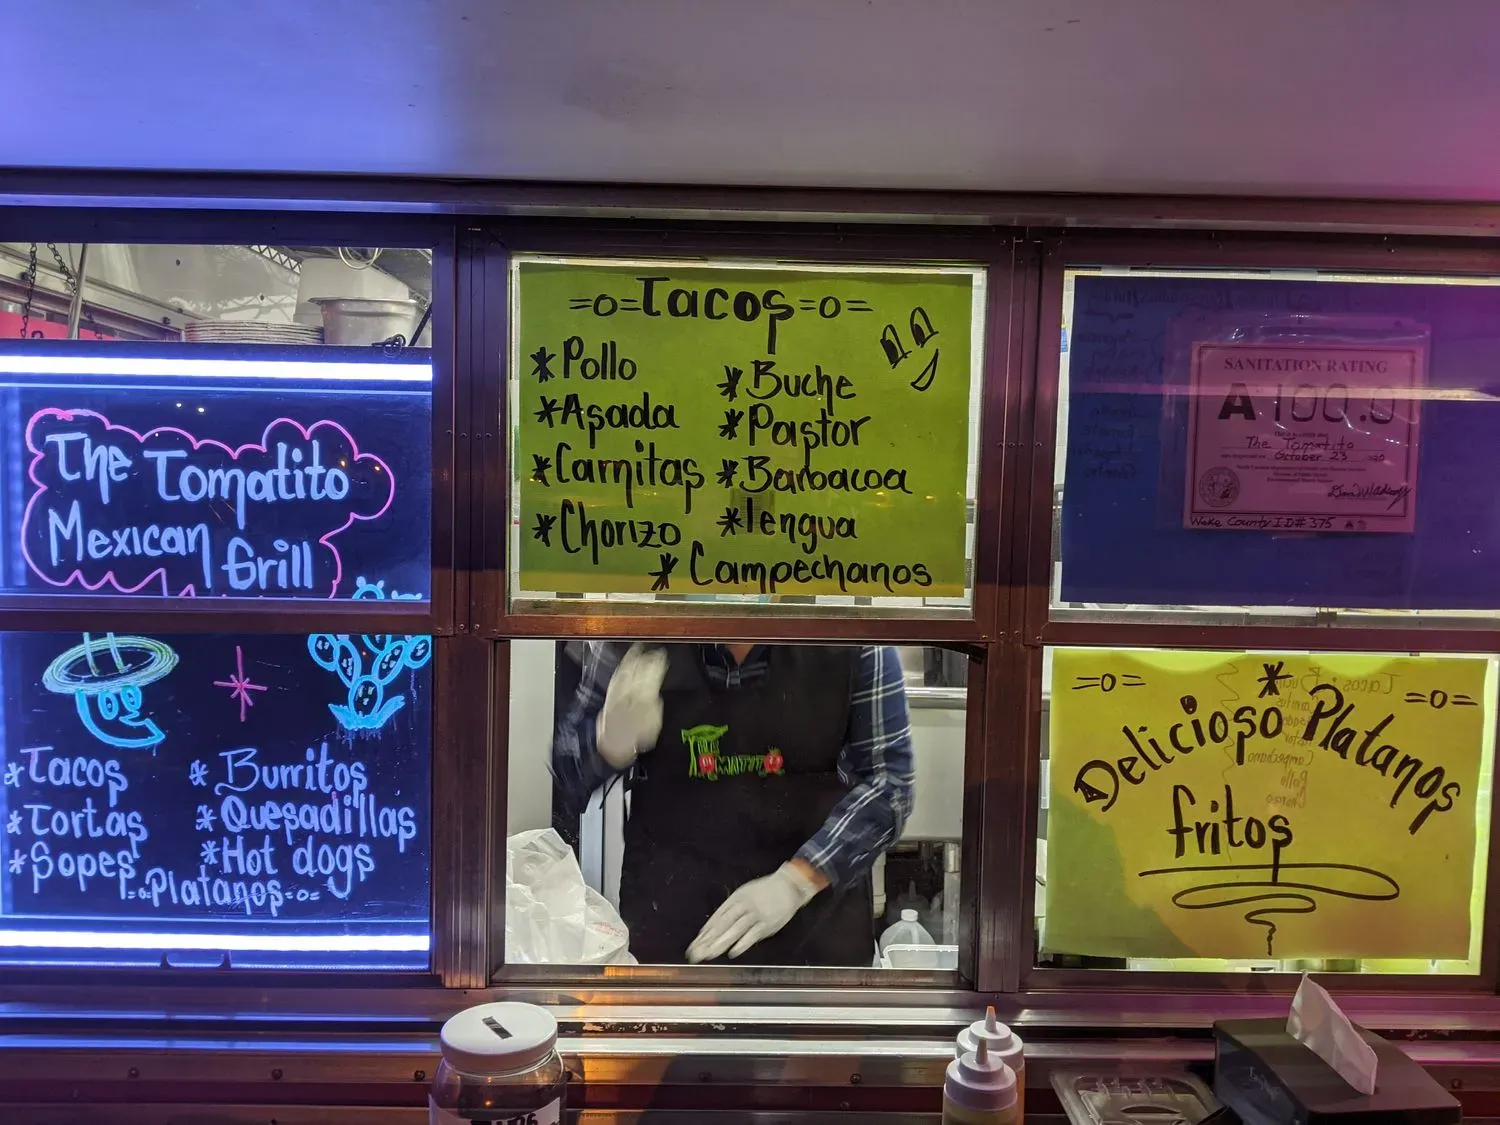 The Tomatito
Mexican Grill
*Tacos
*Tortas
*Sopes
*Burritos
*Quesadillas
*Hot dogs
=o=Platanos=o=
=o=Tacos=o=
*Pollo
*Asada
*Carnitas
*Chorizo
*Buche
*Pastor
*Barbacoa
*lengua
*Campechanos
SANITATION RATING
A 100.0
The Tomatito
October 23
Wake County ID# 375
=o= * =o=
Delicioso Platanos
fritos